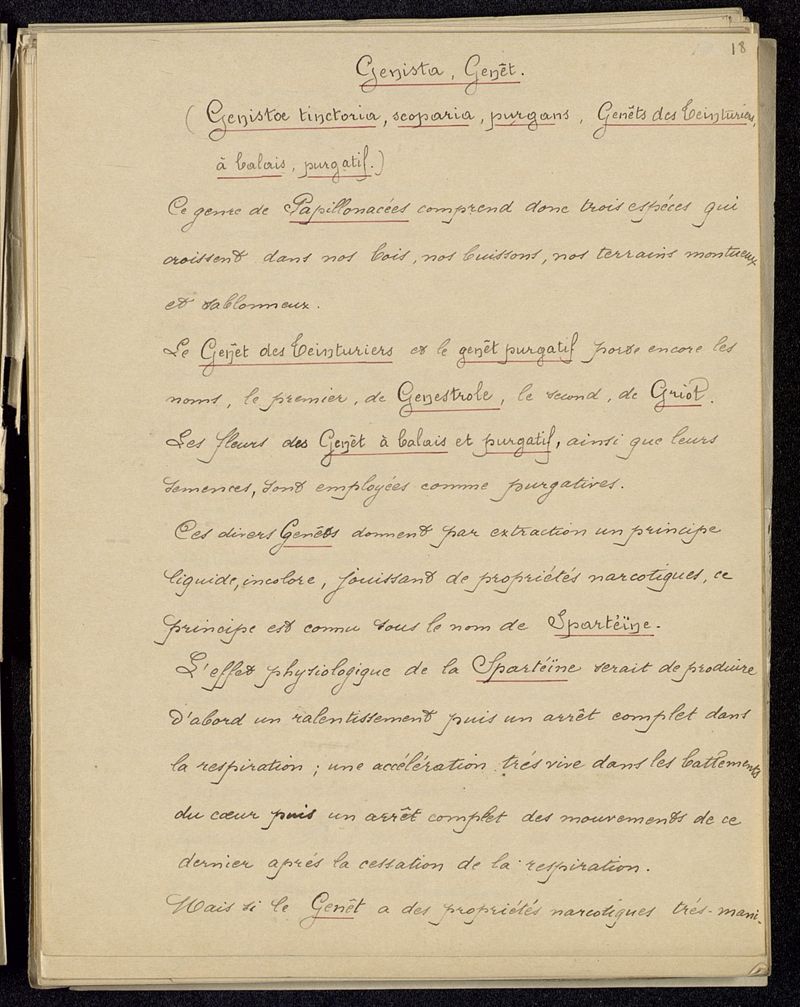 18
Genista, Genêt.
(Genistœ tinctoria, scoparia, purgans, Genêts des Teinturiers,
à balais, purgatif.)
Ce genre de Papillonacées comprend donc trois espéces qui
croissent dans nos bois, nos buissons, nos terrains montueux
et sablonneux.
Le Genêt des Teinturiers et le genêt purgatif porte encore les
noms, le premier, de Genestrole, le second, de Griot.
Les fleurs des Genêt à balais et purgatif, ainsi que leurs
semences, sont employées comme purgatives.
Ces divers Genêts donnent par extraction un principe
liquide, incolore, jouissant de propriétés narcotiques, ce
principe est connu sous le nom de Spartéïne.
L'effet physiologique de la Spartéïne serait de produire
d'abord un ralentissement puis un arrêt complet dans
la respiration; une accélération trés vive dans les battements
du cœur puis un arrêt complet des mouvements de ce
dernier aprés la cessation de la respiration.
Mais si le Genêt a des propriétés narcotiques trés-mani-